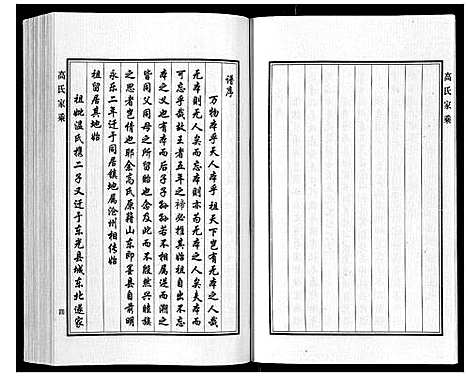 高氏家乘
谱序
万物本乎天人本乎祖天下岂有无本之人哉
无本则无人矣而忘本则亦为无本之人矣夫本
可忘乎哉故王者五年之禘必推其始祖自出不忘
本之义也有本而后子子孙孙若不相属逆而溯之
皆同父同母之所留贻也念及此而不殷然兴睦族
之思者岂情也耶余高氏原籍山东即墨县自前明
永乐二年迁于同居镇地属沧州相传始
祖留居其地始
祖妣温氏携二子又迁于东光县城东北遂家
四
高氏家乘